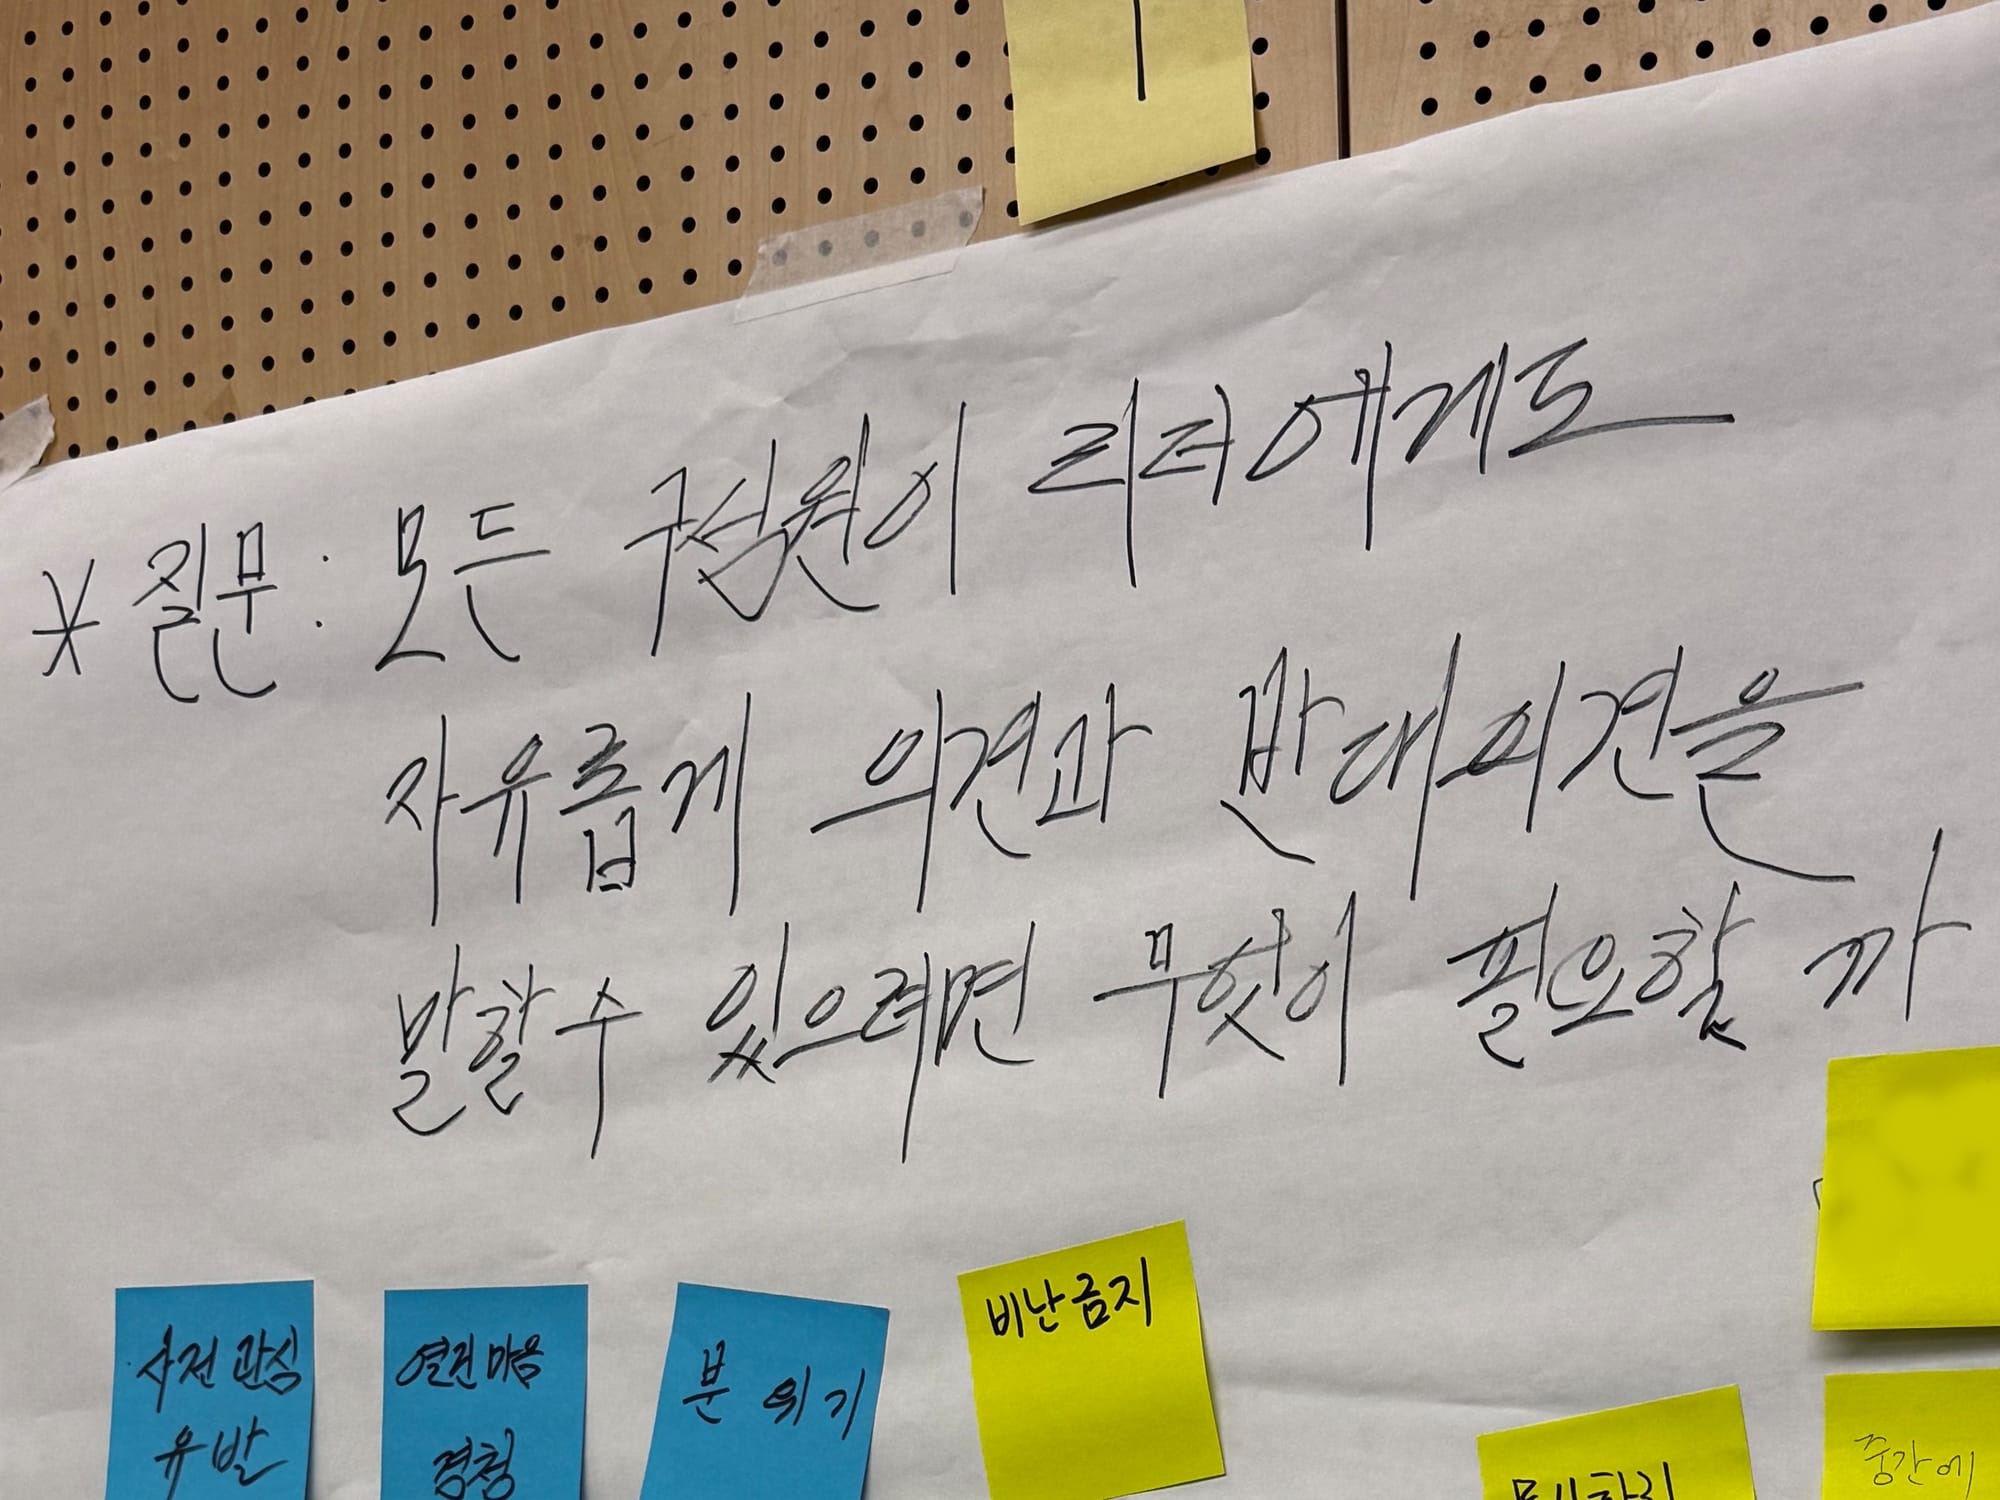 * 질문 : 모든 구성원이 리더에게도
자유롭게 의견과 반대의견을
말할수 있으려면 무엇이 필요할까
사전 관심
유발
열린 마음
경청
분위기
비난금지
중간에